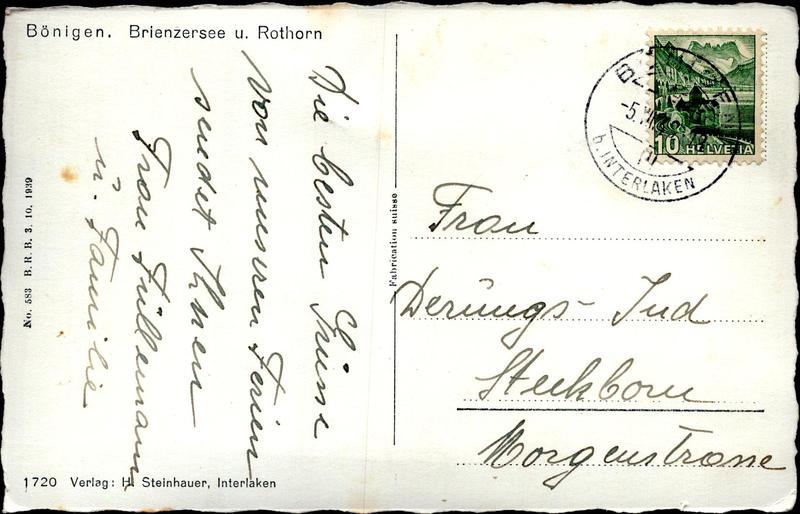 Bönigen. Brienzersee u. Rothorn
Die besten Grüsse
von unseren Ferien
sendet Ihnen
Frau Füllemann
u. Familie
No. 583 B. R. B. 3. 10. 1939
1720 Verlag: H. Steinhauer, Interlaken
Fabrication suisse
10 HELVETIA
b. INTERLAKEN
Frau
Derungs-Jud
Steckborn
Morgenstrasse